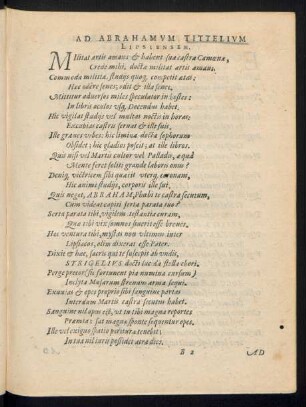 AD ABRAHAMVM TITZELIVM
LIPSIENSEM.
Militat artis amans & habent sua castra Camœnæ,
Crede mihi, docta militat artis amans.
Commoda militiæ, studijs quoq; competit ætas:
Hac odere senes, odit & illa senes.
Mittitur adversos miles speculator in hostes:
In libris oculos usq; Decendus habet.
Hic vigilat studijs vel multas noctis in horas:
Excubias castris servat & iste suis.
Ille graves urbes: hic limina docta sophorum
Obsidet; hic gladios poscit, at ille libros.
Quis nisi vel Martis cultor vel Palladis, æqua
Mente feret soliti grande laboris onus?
Deniq; victricem sibi quærit uterq; coronam,
Hic animi studijs, corporis ille sui.
Quis neget, ABRAHAM, Phœbi te castra secutum,
Cum videat capiti serta parata tuo?
Serta parata tibi, vigilem testantia curam,
Qua tibi vix somnos fuerit esse breves,
Hæc ventura tibi, mystas non ultimus inter
Lipsiacos, olim dixerat esse Pater.
Dixit & hac, sacris qui te suscepit ab undis,
STRIGELIVS docti stella chori.
Perge precor (sic fortunent pia numina cursum)
Inclyta Musarum strenuus arma sequi.
Exuvias & opes proprio sibi sanguine partas
Interdum Martis castra secutus habet.
Sanguine nil opus est, ut tu tibi magna reportes
Præmia: sat magnæ sponte sequentur opes.
Ille vel exiguo spatio potitur & tenebit:
In tua nil iuris possidet atra dies.
B 2
AD